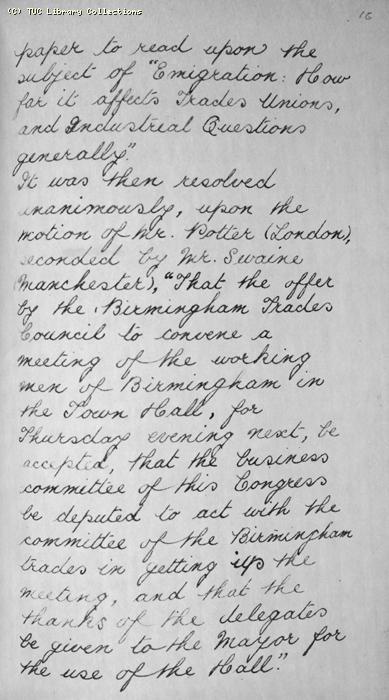 (C) TUC Library Collections
16
paper to read upon the
subject of "Emigration: How
far it affects Trades Unions,
and Industrial Questions
generally."
It was then resolved
unanimously, upon the
motion of Mr. Potter (London),
seconded by Mr. Swaine
(Manchester), "That the offer
by the Birmingham Trades
Council to convene a
meeting of the working
men of Birmingham in
the Town Hall, for
Thursday evening next, be
accepted, that the business
committee of this Congress
be deputed to act with the
committee of the Birmingham
trades in getting up the
meeting, and that the
thanks of the delegates
be given to the Mayor for
the use of the Hall."